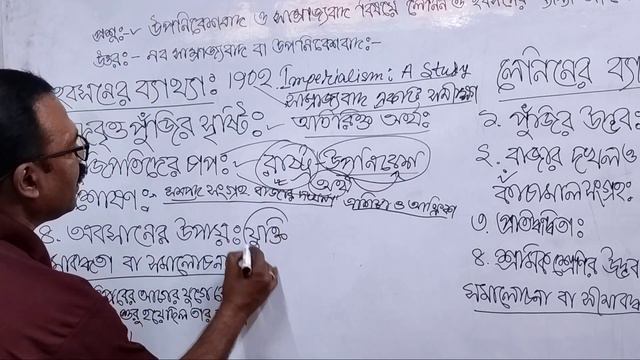 প্রশ্ন:- উপনিবেশবাদ ও সাম্রাজ্যবাদ বিষয়ে লেনিন ও হবসনের
উত্তর:- নব সাম্রাজ্যবাদ বা উপনিবেশবাদ:-
হবসনের ব্যাখ্যা: 1902 Imperialism: A Study
সাম্রাজ্যবাদ একটি সমীক্ষা
পুঁজির সৃষ্টি:- অতিরিক্ত অর্থ:
চাপ:- রাষ্ট্র উপনিবেশ
অর্থ
শোষণ:- সম্পদ সংগ্রহ এশিয়া ও আফ্রিকা
৪. অবসানের উপায়: যুক্তি
বা সমালোচনা
আগের যুগে
শুরু হয়েছিল তার
লেনিনের ব্যা
১. পুঁজির উদ্ভব:
২. বাজার দখল ও
কাঁচামাল সংগ্রহ:
৩. প্রতিদ্বন্দ্বিতা:
৪. শ্রমিক শ্রেণির উদ্ভব
সমালোচনা বা সীমাবদ্ধ